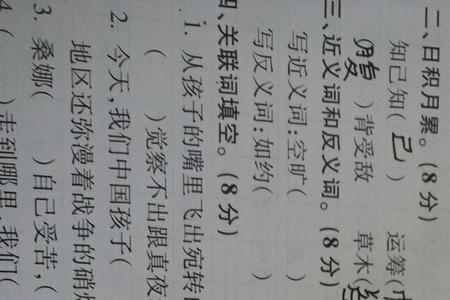 二、日积月累。(8分)
知己知(己) 运筹(
腹)背受敌 草木(
三、近义词和反义词。(8分)
写近义词:空旷( )
写反义词:如约( )
四、关联词填空。(8分)
1. 从孩子的嘴里飞出宛转
( )觉察不出跟真夜
2. 今天,我们中国孩子(
地区还弥漫着战争的硝
3. 桑娜( )自己受苦,(
4. ( )走到哪里,我们(